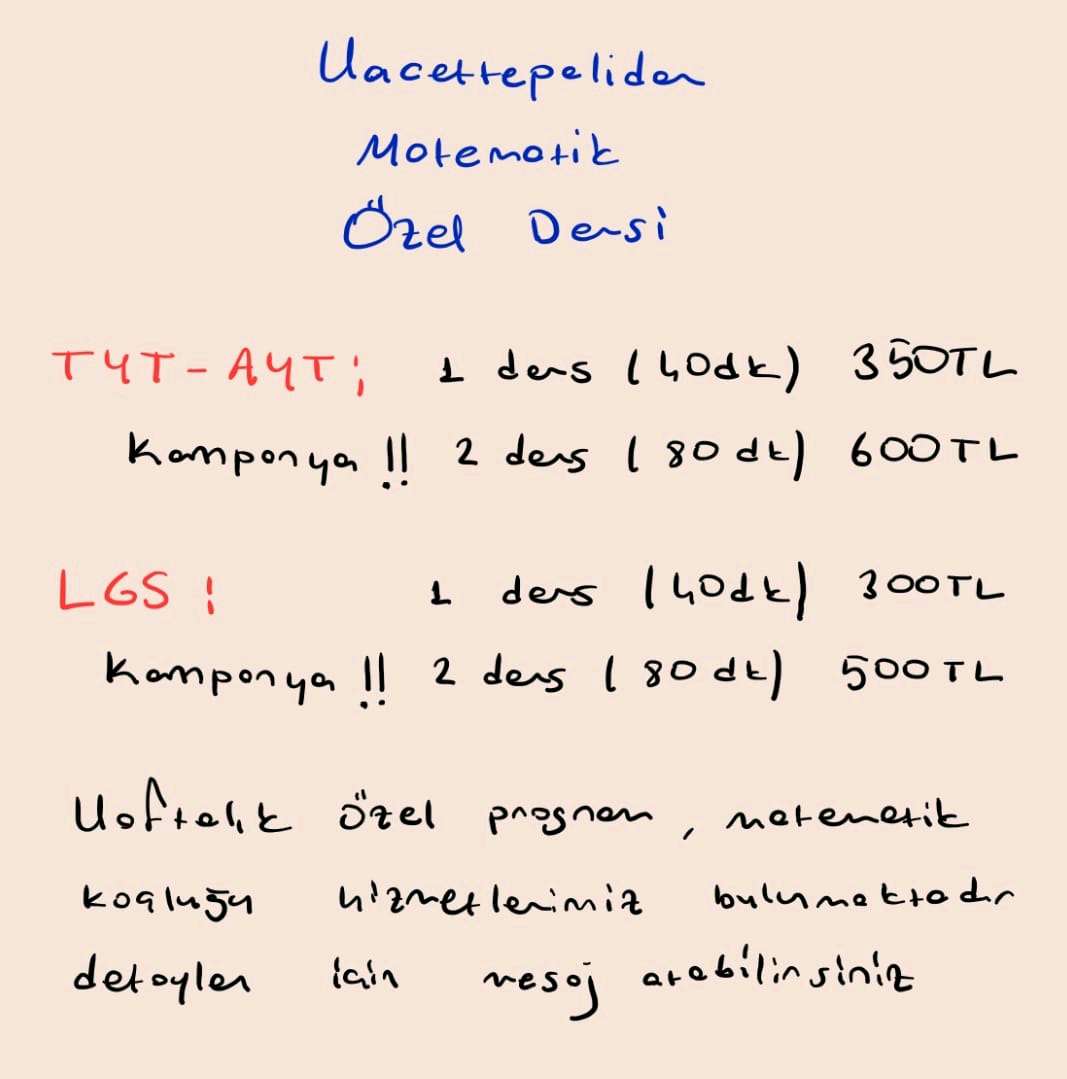 Hacettepeliden
Matematik
Özel Dersi
TYT-AYT: 1 ders (40dk) 350TL
Kampanya!! 2 ders (80 dk) 600TL
LGS: 1 ders (40dk) 300TL
Kampanya!! 2 ders (80 dk) 500TL
Haftalık özel program, matematik
koçluğu hizmetlerimiz bulunmaktadır
detaylar için mesaj atabilirsiniz